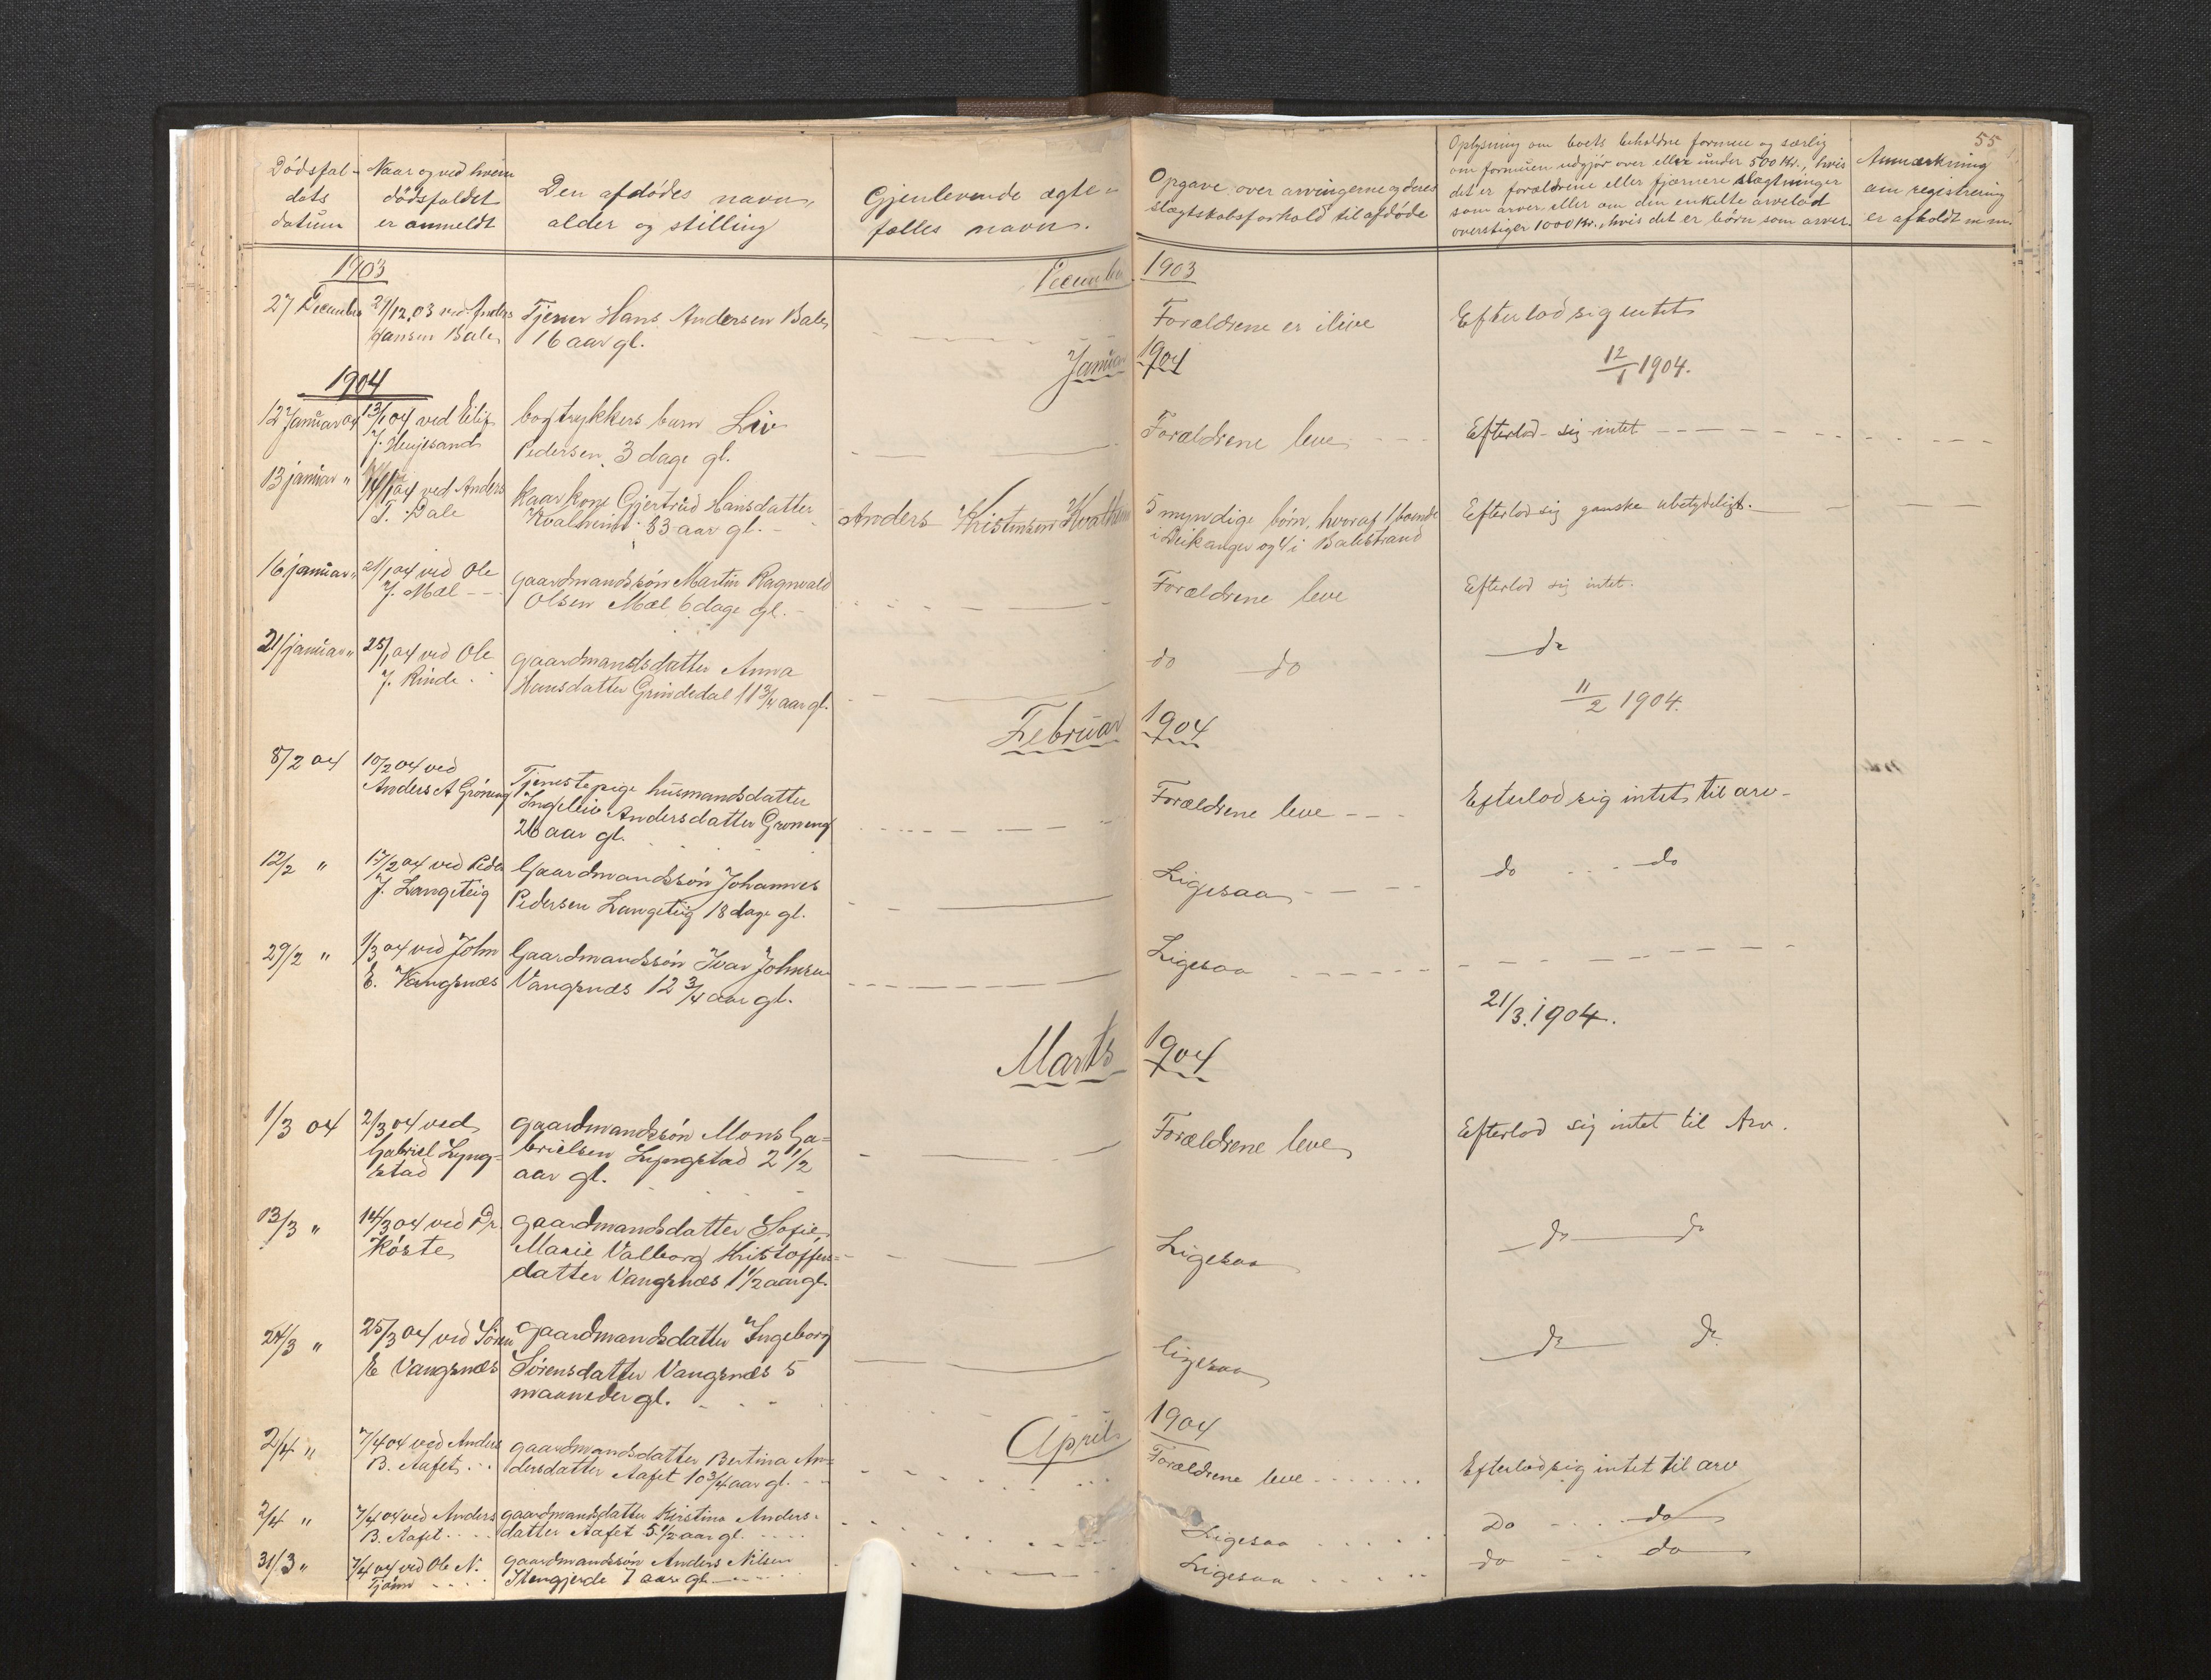 55
Dödsfal-
dets
datum
Naar og ved hvem
dödsfaldet
er anmeldt
Den afdödes navn,
alder og stilling
Gjenlevende ægte-
fælles navn.
Opgave over arvingerne og deres
slægtskabsforhold til afdöde
Oplysning om boets beholdne formue og særlig
om formuen udgjör over eller under 500 Kr., hvis
det er forældrene eller fjærnere slægtninger
som arver, eller om den enkelte arvelod
overstiger 1000 Kr., hvis det er börn som arver.
Anmærkning
om registrering
er afholdt m.m.
1903
December 1903
27 December
29/12.03 ved Anders
Hansen Bale
Tjener Hans Andersen Bale,
16 aar gl.
Forældrene er ilive
Efterlod sig intet
12/1 1904.
Januar 1904
1904
12 Januar 04
13/1 04 ved Eilif
J. Husjesand
bogtrykkers barn Liv
Pedersen, 3 dage gl.
Forældrene leve
Efterlod sig intet
13 januar "
14/1 04 ved Anders
T. Dale
Kaarkone Gjertrud Hansdatter
Kvalheim 83 aar gl.
Anders Kristensen Kvalheim
5 myndige börn, hvoraf 1 boende
i Leikanger og 4 i Balestrand
Efterlod sig ganske ubetydeligt.
16 januar "
21/1 04 ved Ole
J. Mæl
gaardmandssön Martin Ragnvald
Olsen Mæl 6 dage gl.
Forældrene leve
Efterlod sig intet.
21/januar "
25/1 04 ved Ole
J. Rinde
gaardmandsdatter Anna
Hansdatter Grindedal 11 3/4 aar gl.
do do
do
11/2 1904.
Februar 1904
8/2 04
10/2 04 ved
Anders A Gröneng
Tjenestepige husmandsdatter
Ingeleiv Andersdatter Gröneng
26 aar gl.
Forældrene leve
Efterlod sig intet til arv
12/2 "
17/2 04 ved Peder
J. Langeteig
Gaardmandssön Johannes
Pedersen Langeteig 18 dage gl.
Ligesaa
do do
29/2 "
1/3 04 ved John
E. Vangsnæs
Gaardmandssön Ivar Johnsen
Vangsnæs 12 3/4 aar gl.
Ligesaa
21/3.1904.
Marts 1904
1/3 04
2/3 04 ved
Gabriel Lyng=
stad
gaardmandssön Mons Ga=
brielsen Lyngstad 2 1/2
aar gl.
Forældrene leve
Efterlod sig intet til Arv.
13/3 "
14/3 04 ved Dr.
Körte
gaardmandsdatter Sofie
Marie Valborg Kristoffers=
datter Vangsnæs 1 1/2 aar gl.
Ligesaa
do do
24/3 "
25/3 04 ved Sören
E Vangsnæs
gaardmandsdatter Ingeborg
Sörensdatter Vangsnæs 5
maaneder gl.
ligesaa
do do
April 1904
2/4 "
7/4 04 ved Anders
B. Aafet
gaardmandsdatter Bertina An=
dersdatter Aafet 10 3/4 aar gl.
Forældrene leve
Efterlod sig intet til arv
2/4 "
7/4 04 ved Anders
B. Aafet
gaardmandsdatter Kristina Anders-
datter Aafet 5 1/2 aar gl.
Ligesaa
Do do
31/3 "
7/4 04 ved Ole N.
Tjönn
gaardmandssön Anders Nilsen
Stengjerde 7 aar gl.
Ligesaa
do do